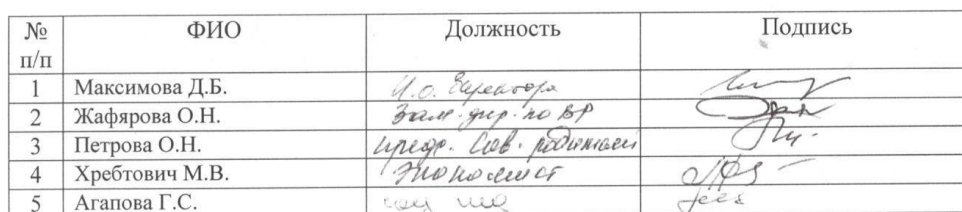 № п/п ФИО Должность Подпись
1 Максимова Д.Б. И.о. директора
2 Жафярова О.Н. Зам. дир. по ВР
3 Петрова О.Н. предс. Сов. родителей
4 Хребтович М.В. Экономист
5 Агапова Г.С.